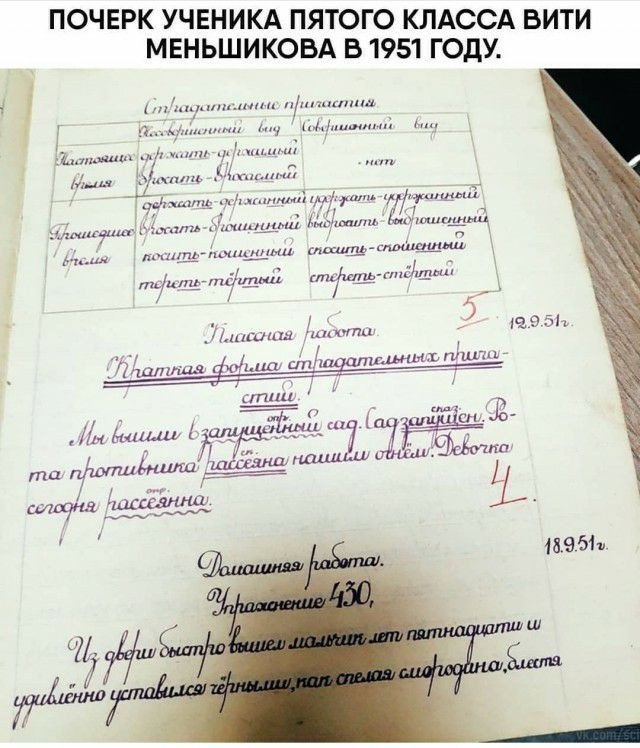 ПОЧЕРК УЧЕНИКА ПЯТОГО КЛАССА ВИТИ
МЕНЬШИКОВА В 1951 ГОДУ.
Страдательные причастия
Несовершенный вид Совершенный вид
Настоящее время
держать - держимый
бросать - бросаемый
- нет
Прошедшее время
держать - держанный удержать - удержанный
бросать - брошенный выбросить - выброшенный
косить - кошенный скосить - скошенный
тереть - тёртый стереть - стёртый
5
Классная работа. 12.9.51г.
Краткая форма страдательных прича-
стий.
опр. сказ.
Мы вышли в запущенный сад. Сад запущен. Ро-
ск.
та противника рассеяна нашим огнём. Девочка
опр.
сегодня рассеянна.
4
Домашняя работа. 18.9.51г.
Упражнение 430,
Из двери быстро вышел мальчик лет пятнадцати и
удивлённо уставился чёрными, как спелая смородина, блестя
vk.com/sci